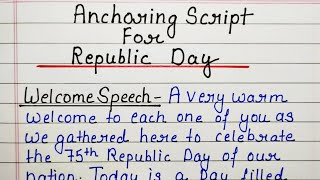 Anchoring Script
For
Republic Day
Welcome Speech- A very warm
welcome to each one of you as
we gathered here to celebrate
the 75th Republic Day of our
nation. Today is a Day filled